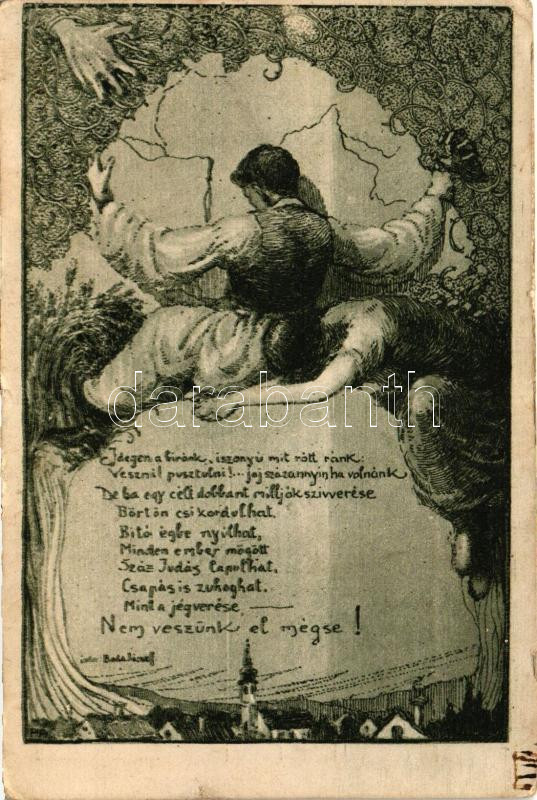 Idegen a biránk, iszonyú mit rótt ránk:
Veszni! pusztulni!... jaj százannyin ha volnánk
De ha egy célt dobbant milljók szivverése
Börtön csikordulhat.
Bitó égbe nyilhat,
Minden ember mögött
Száz Judás lapulhat,
Csapás is zuhoghat.
Mint a jégverése, —
Nem veszünk el mégse!
darabanth